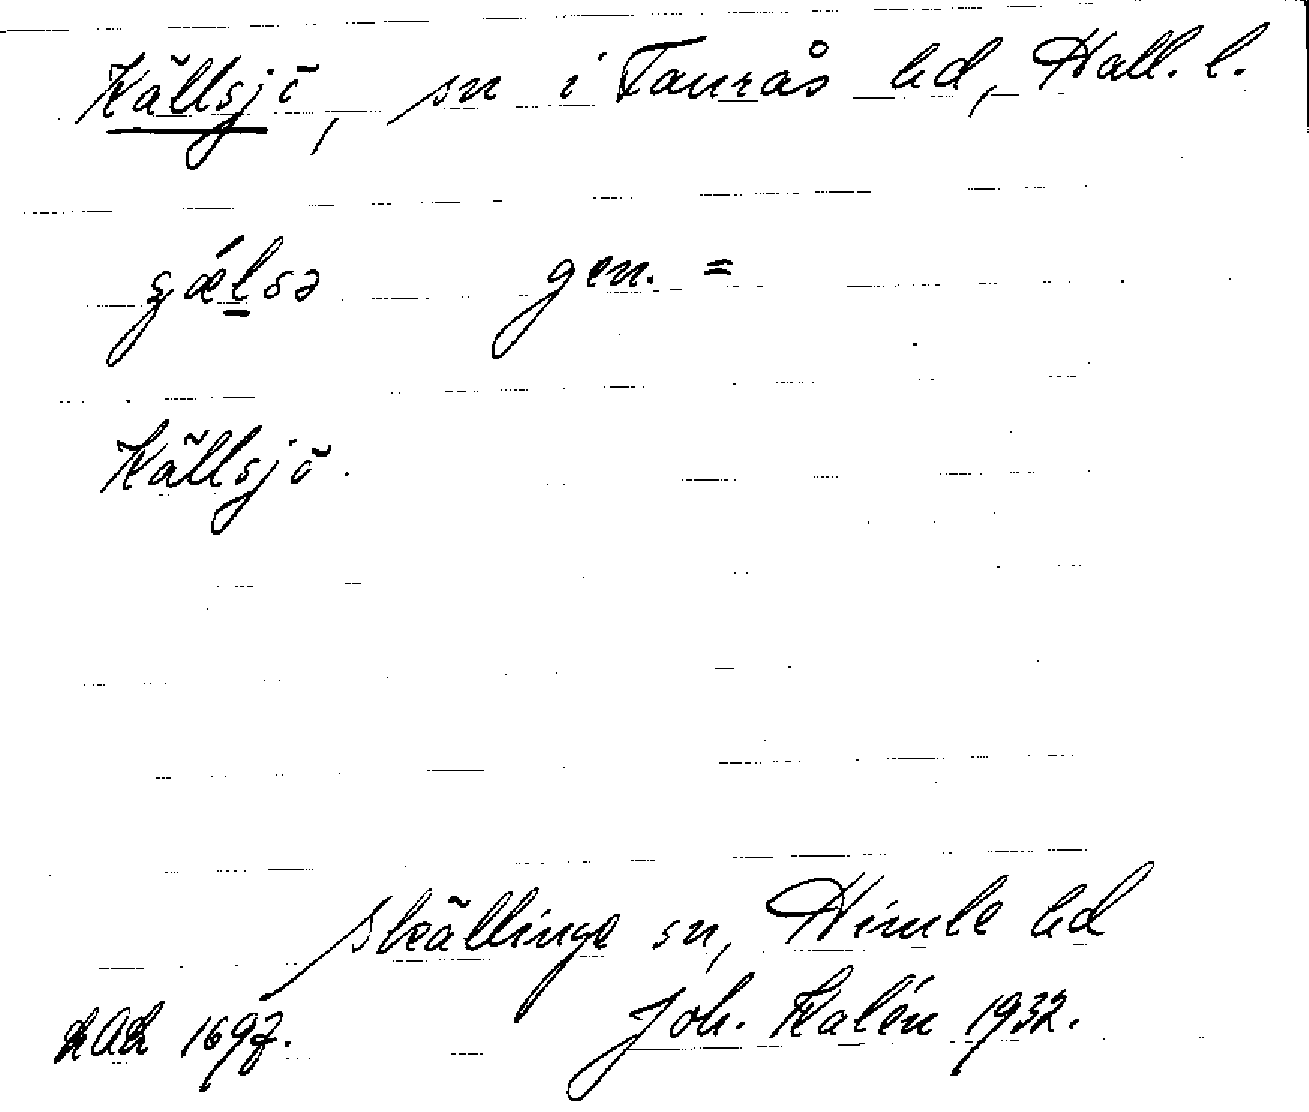 Källsjö, sn i Faurås hd, Hall. l.
gen. =
Källsjö.
Skällinge sn, Himle hd
LAL 1697. Joh. Kalén 1932.